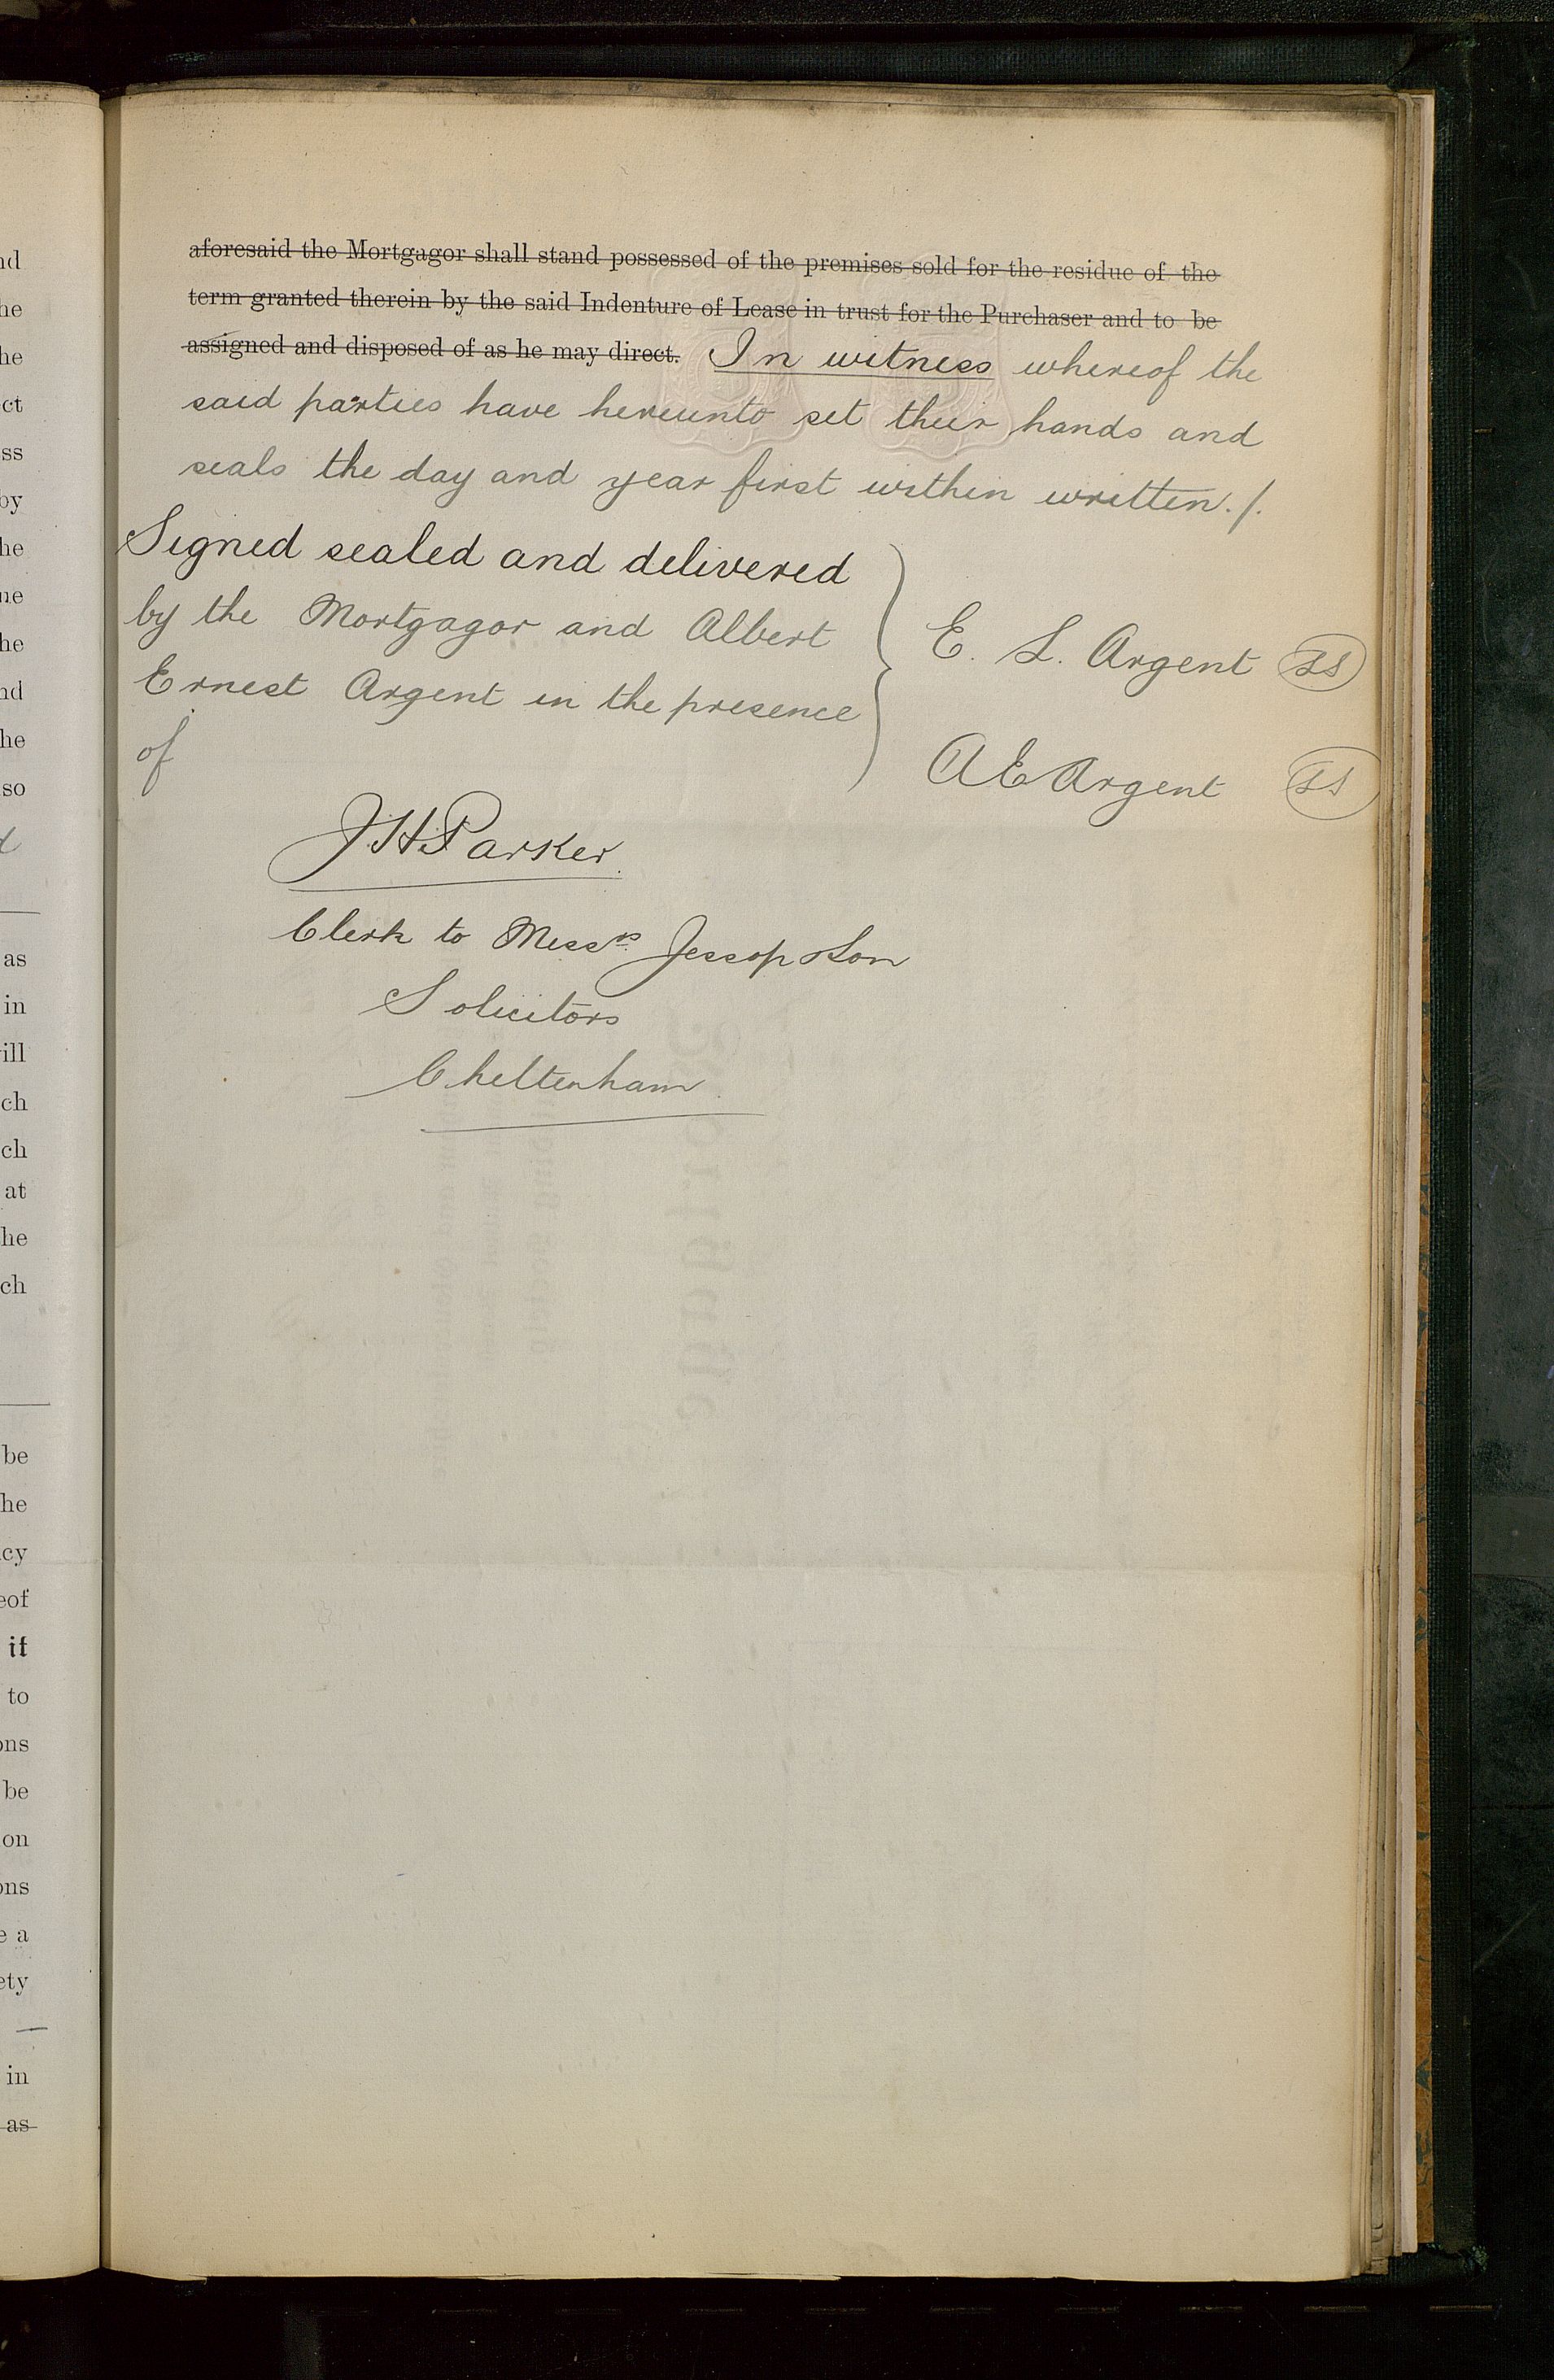 aforesaid the Mortgagor shall stand possessed of the premises sold for the residue of the
term granted therein by the said Indenture of Lease in trust for the Purchaser and to be
assigned and disposed of as he may direct. In witness whereof the
said parties have hereunto set their hands and
seals the day and year first within written./.
Signed sealed and delivered
by the Mortgagor and Albert
Ernest Argent in the presence
of
E. L. Argent LS
A E Argent LS
J H Parker.
Clerk to Messrs Jessop & Son
Solicitors
Cheltenham.
nd
he
he
ct
ss
by
he
ne
he
nd
he
so
d
as
in
ill
ch
ch
at
he
ch
be
he
cy
eof
if
to
ons
be
on
ons
e a
ety
in
as